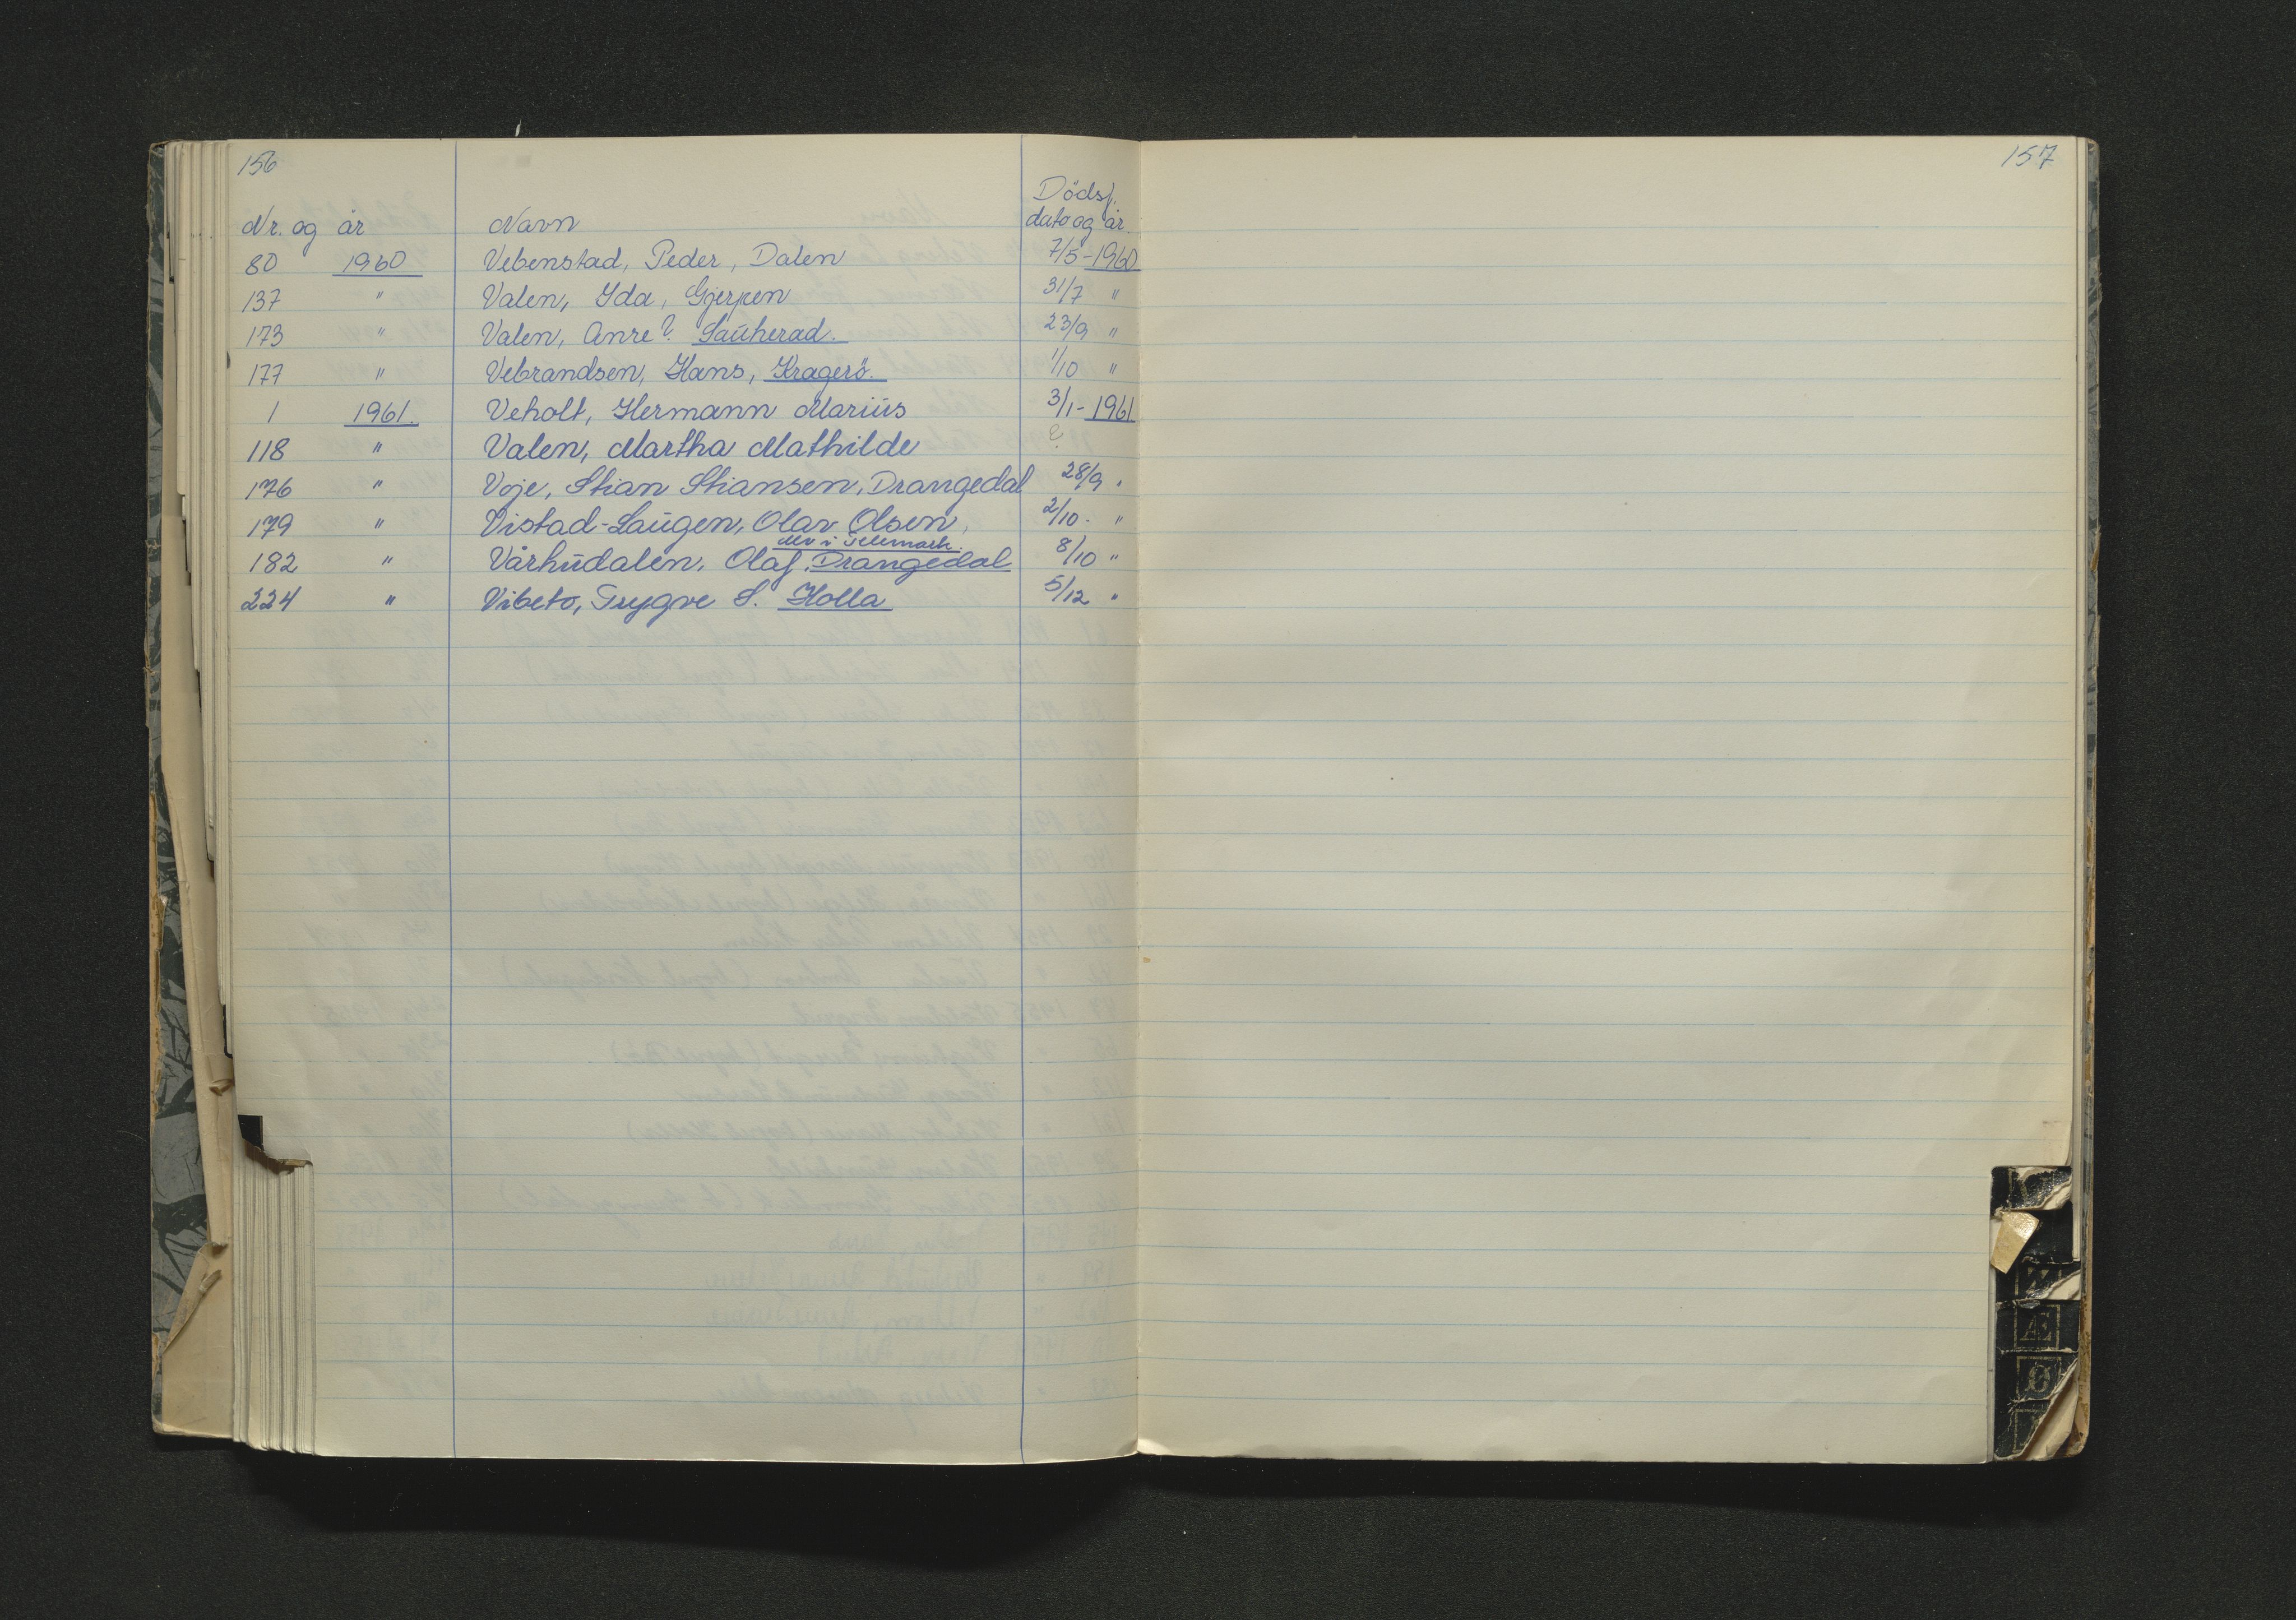 156
157
Dödsf.
Nr. og år Navn dato og år.
80 1960 Vebenstad, Peder, Dalen 7/5-1960
137 " Valen, Ida, Gjerpen 31/7 "
173 " Valen, Anre? Sauherad. 23/9 "
177 " Vebrandsen, Hans, Kragerö. 1/10 "
1 1961. Veholt, Hermann Marius 3/1-1961
118 " Valen, Martha Mathilde ?
176 " Voje, Stian Stiansen, Drangedal 28/9 "
179 " Vistad-Laugen, Olav Olsen, 2/10. "
i Telemark.
182 " Vårhudalen, Olaf, Drangedal 8/10 "
224 " Vibeto, Trygve S. Holla 5/12 "
Æ
Ø